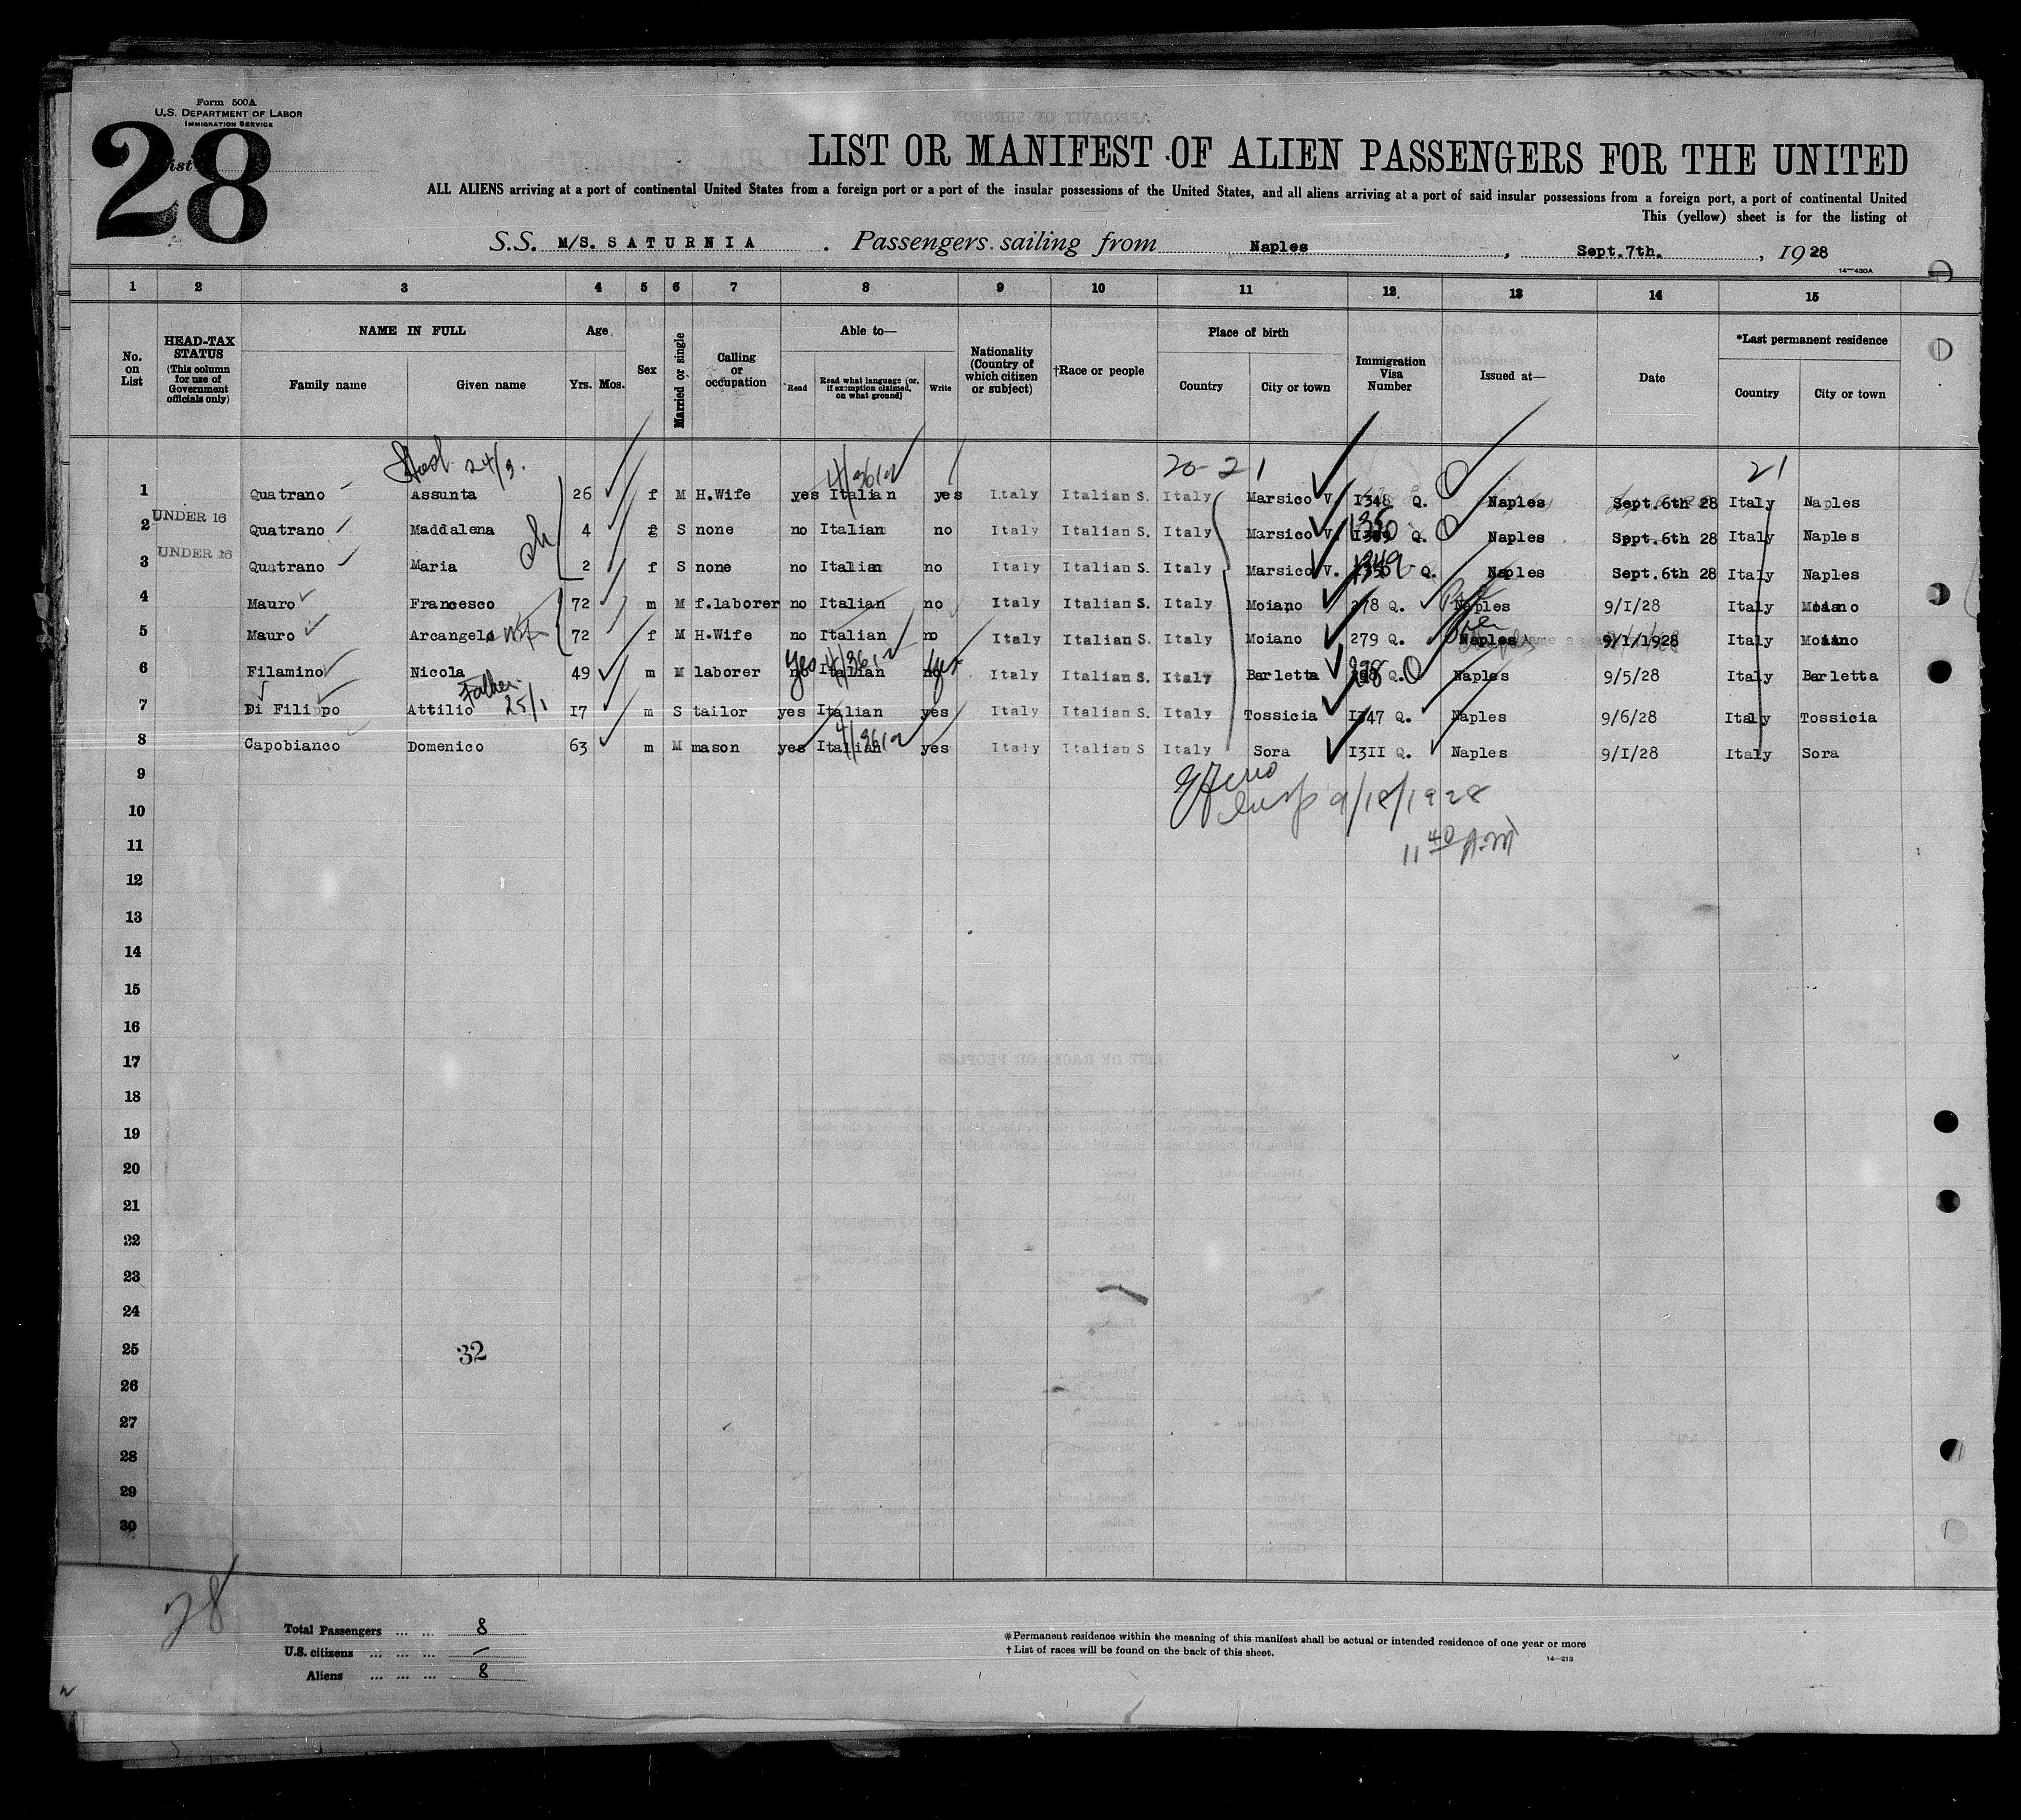 Form 500A
U.S. DEPARTMENT OF LABOR
IMMIGRATION SERVICE
28
List
LIST OR MANIFEST OF ALIEN PASSENGERS FOR THE UNITED
ALL ALIENS arriving at a port of continental United States from a foreign port or a port of the insular possessions of the United States, and all aliens arriving at a port of said insular possessions from a foreign port, a port of continental United
This (yellow) sheet is for the listing of
S.S. M/S. SATURNIA. Passengers sailing from Naples, Sept.7th., 1928
14—430A
1 2 3 4 5 6 7 8 9 10 11 12 13 14 15
No. on List
HEAD-TAX STATUS (This column for use of Government officials only)
NAME IN FULL
Family name Given name
Age
Yrs. Mos.
Sex
Married or single
Calling or occupation
Able to—
Read
Read what language (or, if exemption claimed, on what ground)
Write
Nationality (Country of which citizen or subject)
†Race or people
Place of birth
Country City or town
Immigration Visa Number
Issued at—
Date
*Last permanent residence
Country City or town
24/9. 20-21 21
1 Quatrano Assunta 26 f M H.Wife yes Italian yes Italy Italian S. Italy Marsico V. I348 Q. Naples Sept.6th 28 Italy Naples
UNDER 16
2 Quatrano Maddalena 4 f S none no Italian no Italy Italian S. Italy Marsico V. Q. Naples Sppt.6th 28 Italy Naples
UNDER 16
3 Quatrano Maria 2 f S none no Italian no Italy Italian S. Italy Marsico V. 1349 Q. Naples Sept.6th 28 Italy Naples
4 Mauro Francesco 72 m M f.laborer no Italian no Italy Italian S. Italy Moiano 278 Q. Naples 9/I/28 Italy Moiano
5 Mauro Arcangela Wife 72 f M H.Wife no Italian no Italy Italian S. Italy Moiano 279 Q. Naples 9/1/1928 Italy Moiano
6 Filamino Nicola 49 m M laborer yes Italian yes Italy Italian S. Italy Barletta Q. Naples 9/5/28 Italy Barletta
Father 25/1
7 Di Filippo Attilio I7 m S tailor yes Italian yes Italy Italian S. Italy Tossicia I347 Q. Naples 9/6/28 Italy Tossicia
8 Capobianco Domenico 63 m M mason yes Italian yes Italy Italian S Italy Sora I3II Q. Naples 9/I/28 Italy Sora
9
Insp 9/18/1928
10
11 40 A.M
11
12
13
14
15
16
17
18
19
20
21
22
23
24
25
32
26
27
28
29
30
28
Total Passengers ... ... 8
U.S. citizens ... ... ... —
Aliens ... ... ... 8
*Permanent residence within the meaning of this manifest shall be actual or intended residence of one year or more
†List of races will be found on the back of this sheet.
14—213